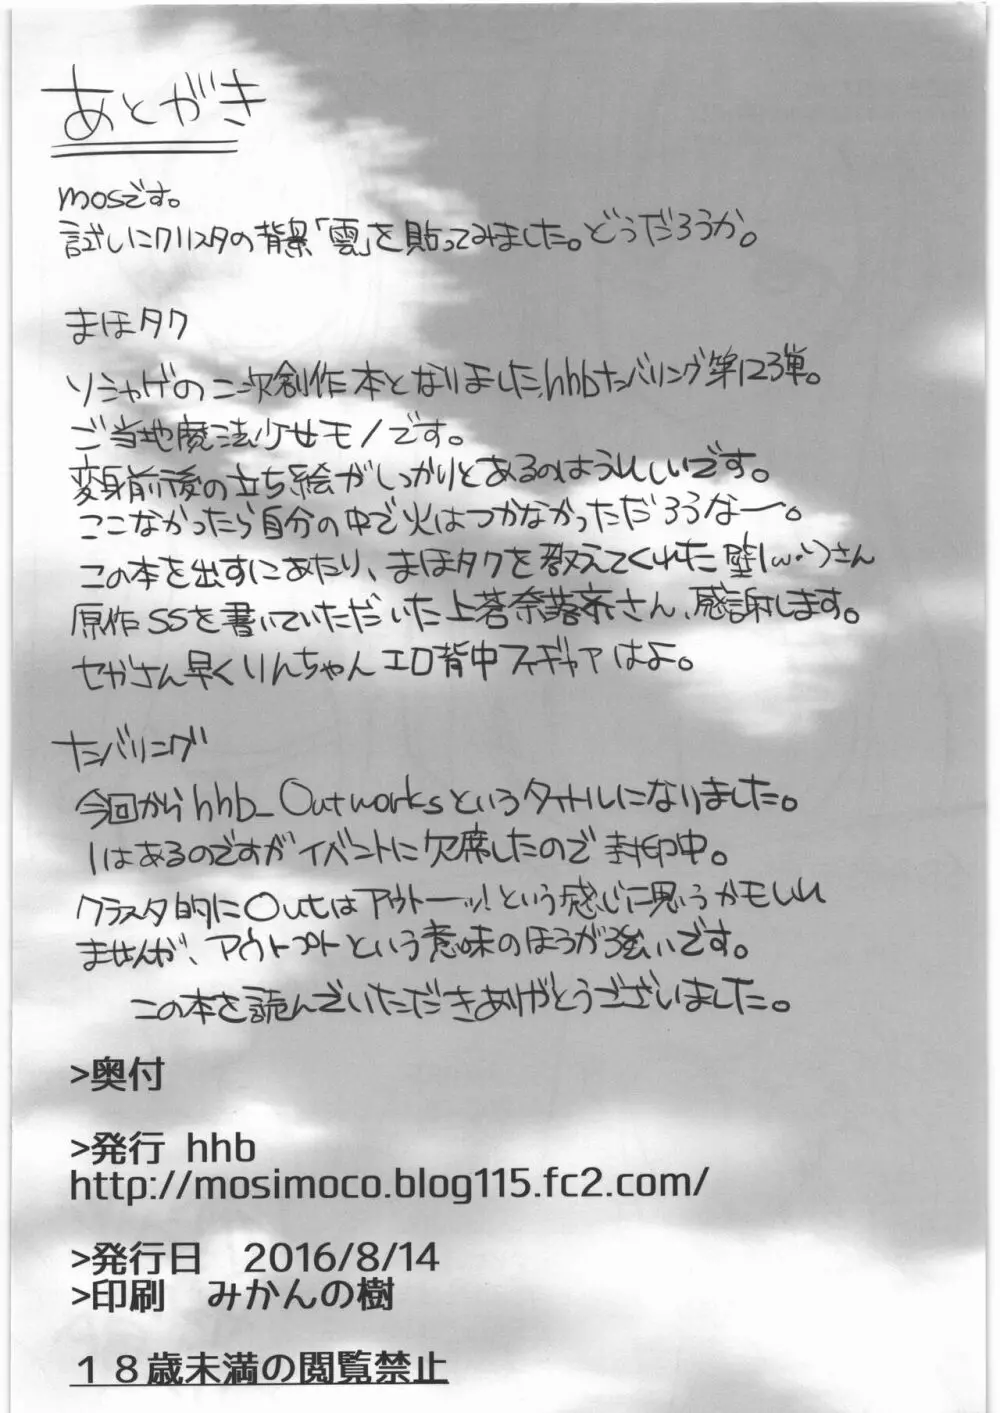 あとがき
mosです。
試しにクリスタの背景「雲」を貼ってみました。どうだろうか。
まほタク
ソシャゲの二次創作本となりました、hhbナンバリング第123弾。
ご当地魔法少女モノです。
変身前後の立ち絵がしっかりとあるのはうれしいです。
ここなかったら自分の中で火はつかなかっただろうなー。
この本を出すにあたり、まほタクを教えてくれた壁|ω・)さん
原作SSを書いていただいた上蒼奈落さん、感謝します。
セガさん早くりんちゃんエロ背中フィギャァはよ。
ナンバリング
今回からhhb_Outworksというタイトルになりました。
1はあるのですがイベントに欠席したので封印中。
クラスタ的にOutはアウトーッ!という感じに思うかもしれ
ませんが、アウトプットという意味のほうが強いです。
この本を読んでいただきありがとうございました。
>奥付
>発行 hhb
http://mosimoco.blog115.fc2.com/
>発行日 2016/8/14
>印刷 みかんの樹
18歳未満の閲覧禁止